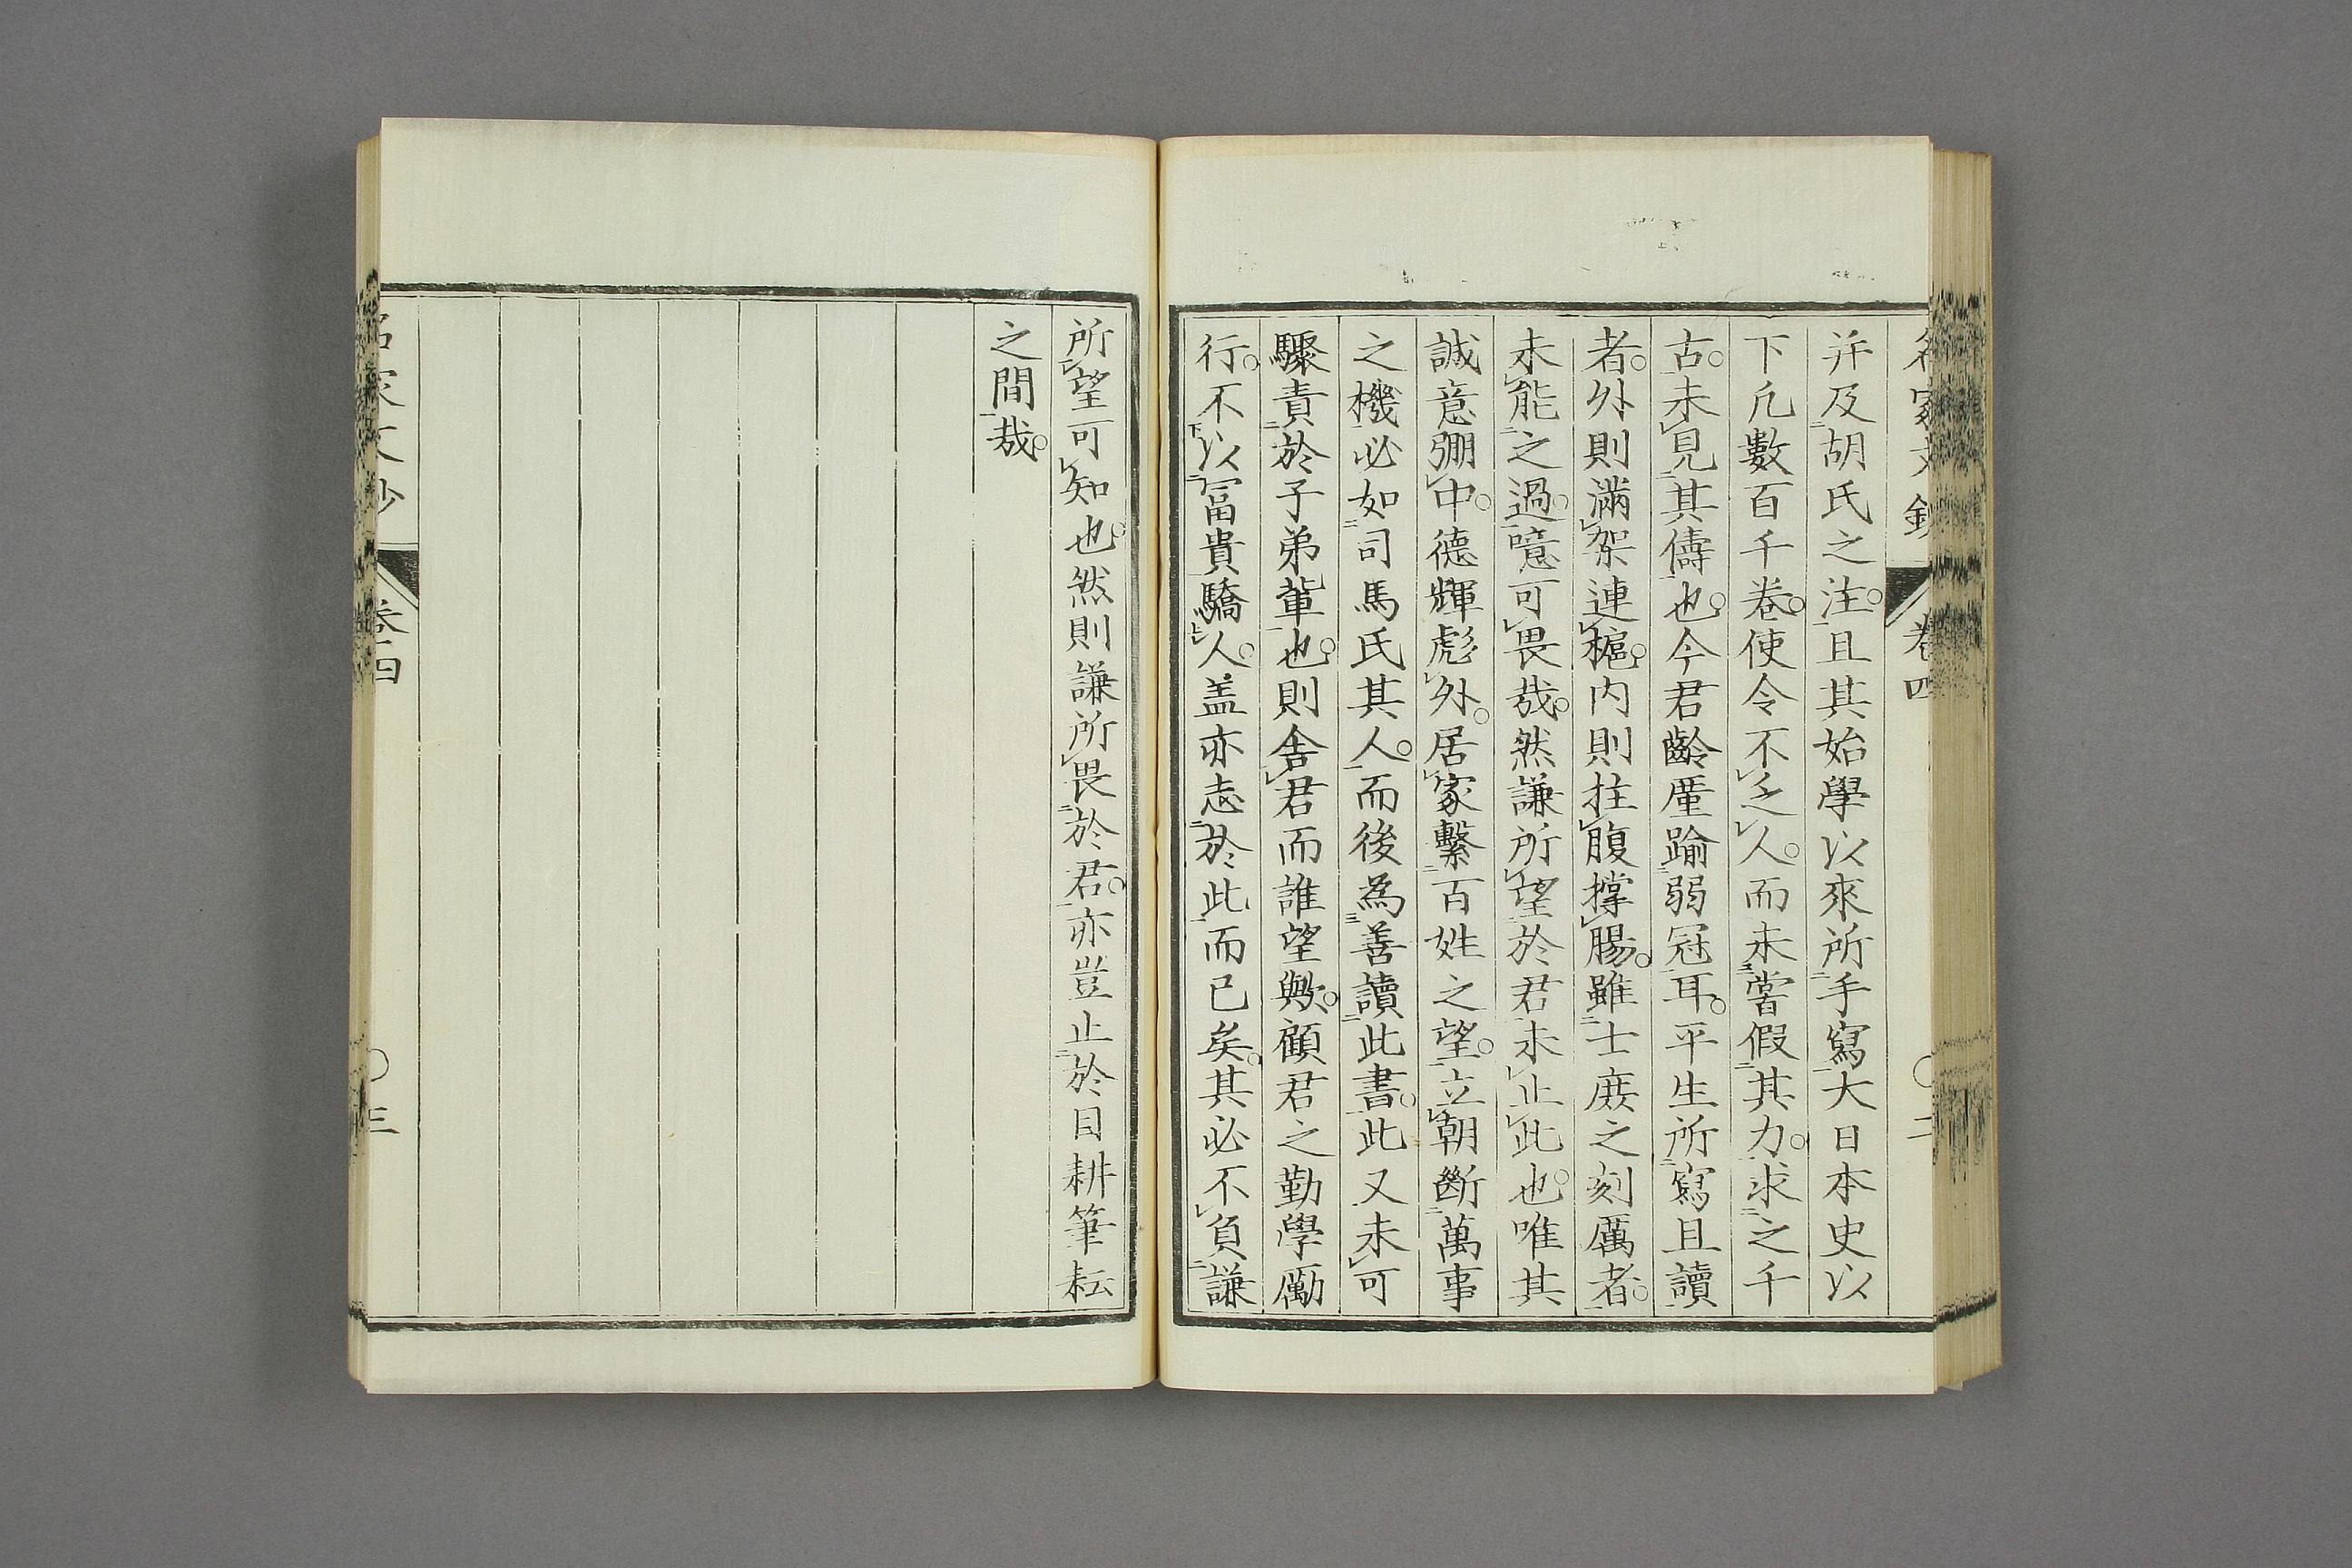 名家文鈔 卷四 二
并及胡氏之注。且其始學以來所手寫大日本史以
下凡數百千卷。使令不乏人。而未嘗假其力。求之千
古。未見其儔也。今君齡厪踰弱冠耳。平生所寫且讀
者。外則滿架連櫳。内則拄腹撑腸。雖士庻之刻厲者。
未能之過。噫可畏哉。然謙所望於君未止此也。唯其
誠意弸中。德輝彪外。居家繫百姓之望。立朝斷萬事
之機必如司馬氏其人。而後為善讀此書。此又未可
驟責於子弟軰也。則舍君而誰望歟。顧君之勤學勵
行。不以冨貴驕人。盖亦志於此而已矣。其必不負謙
所望可知也。然則謙所畏於君。亦豈止於目耕筆耘
之間哉。
名家文鈔 卷四 三